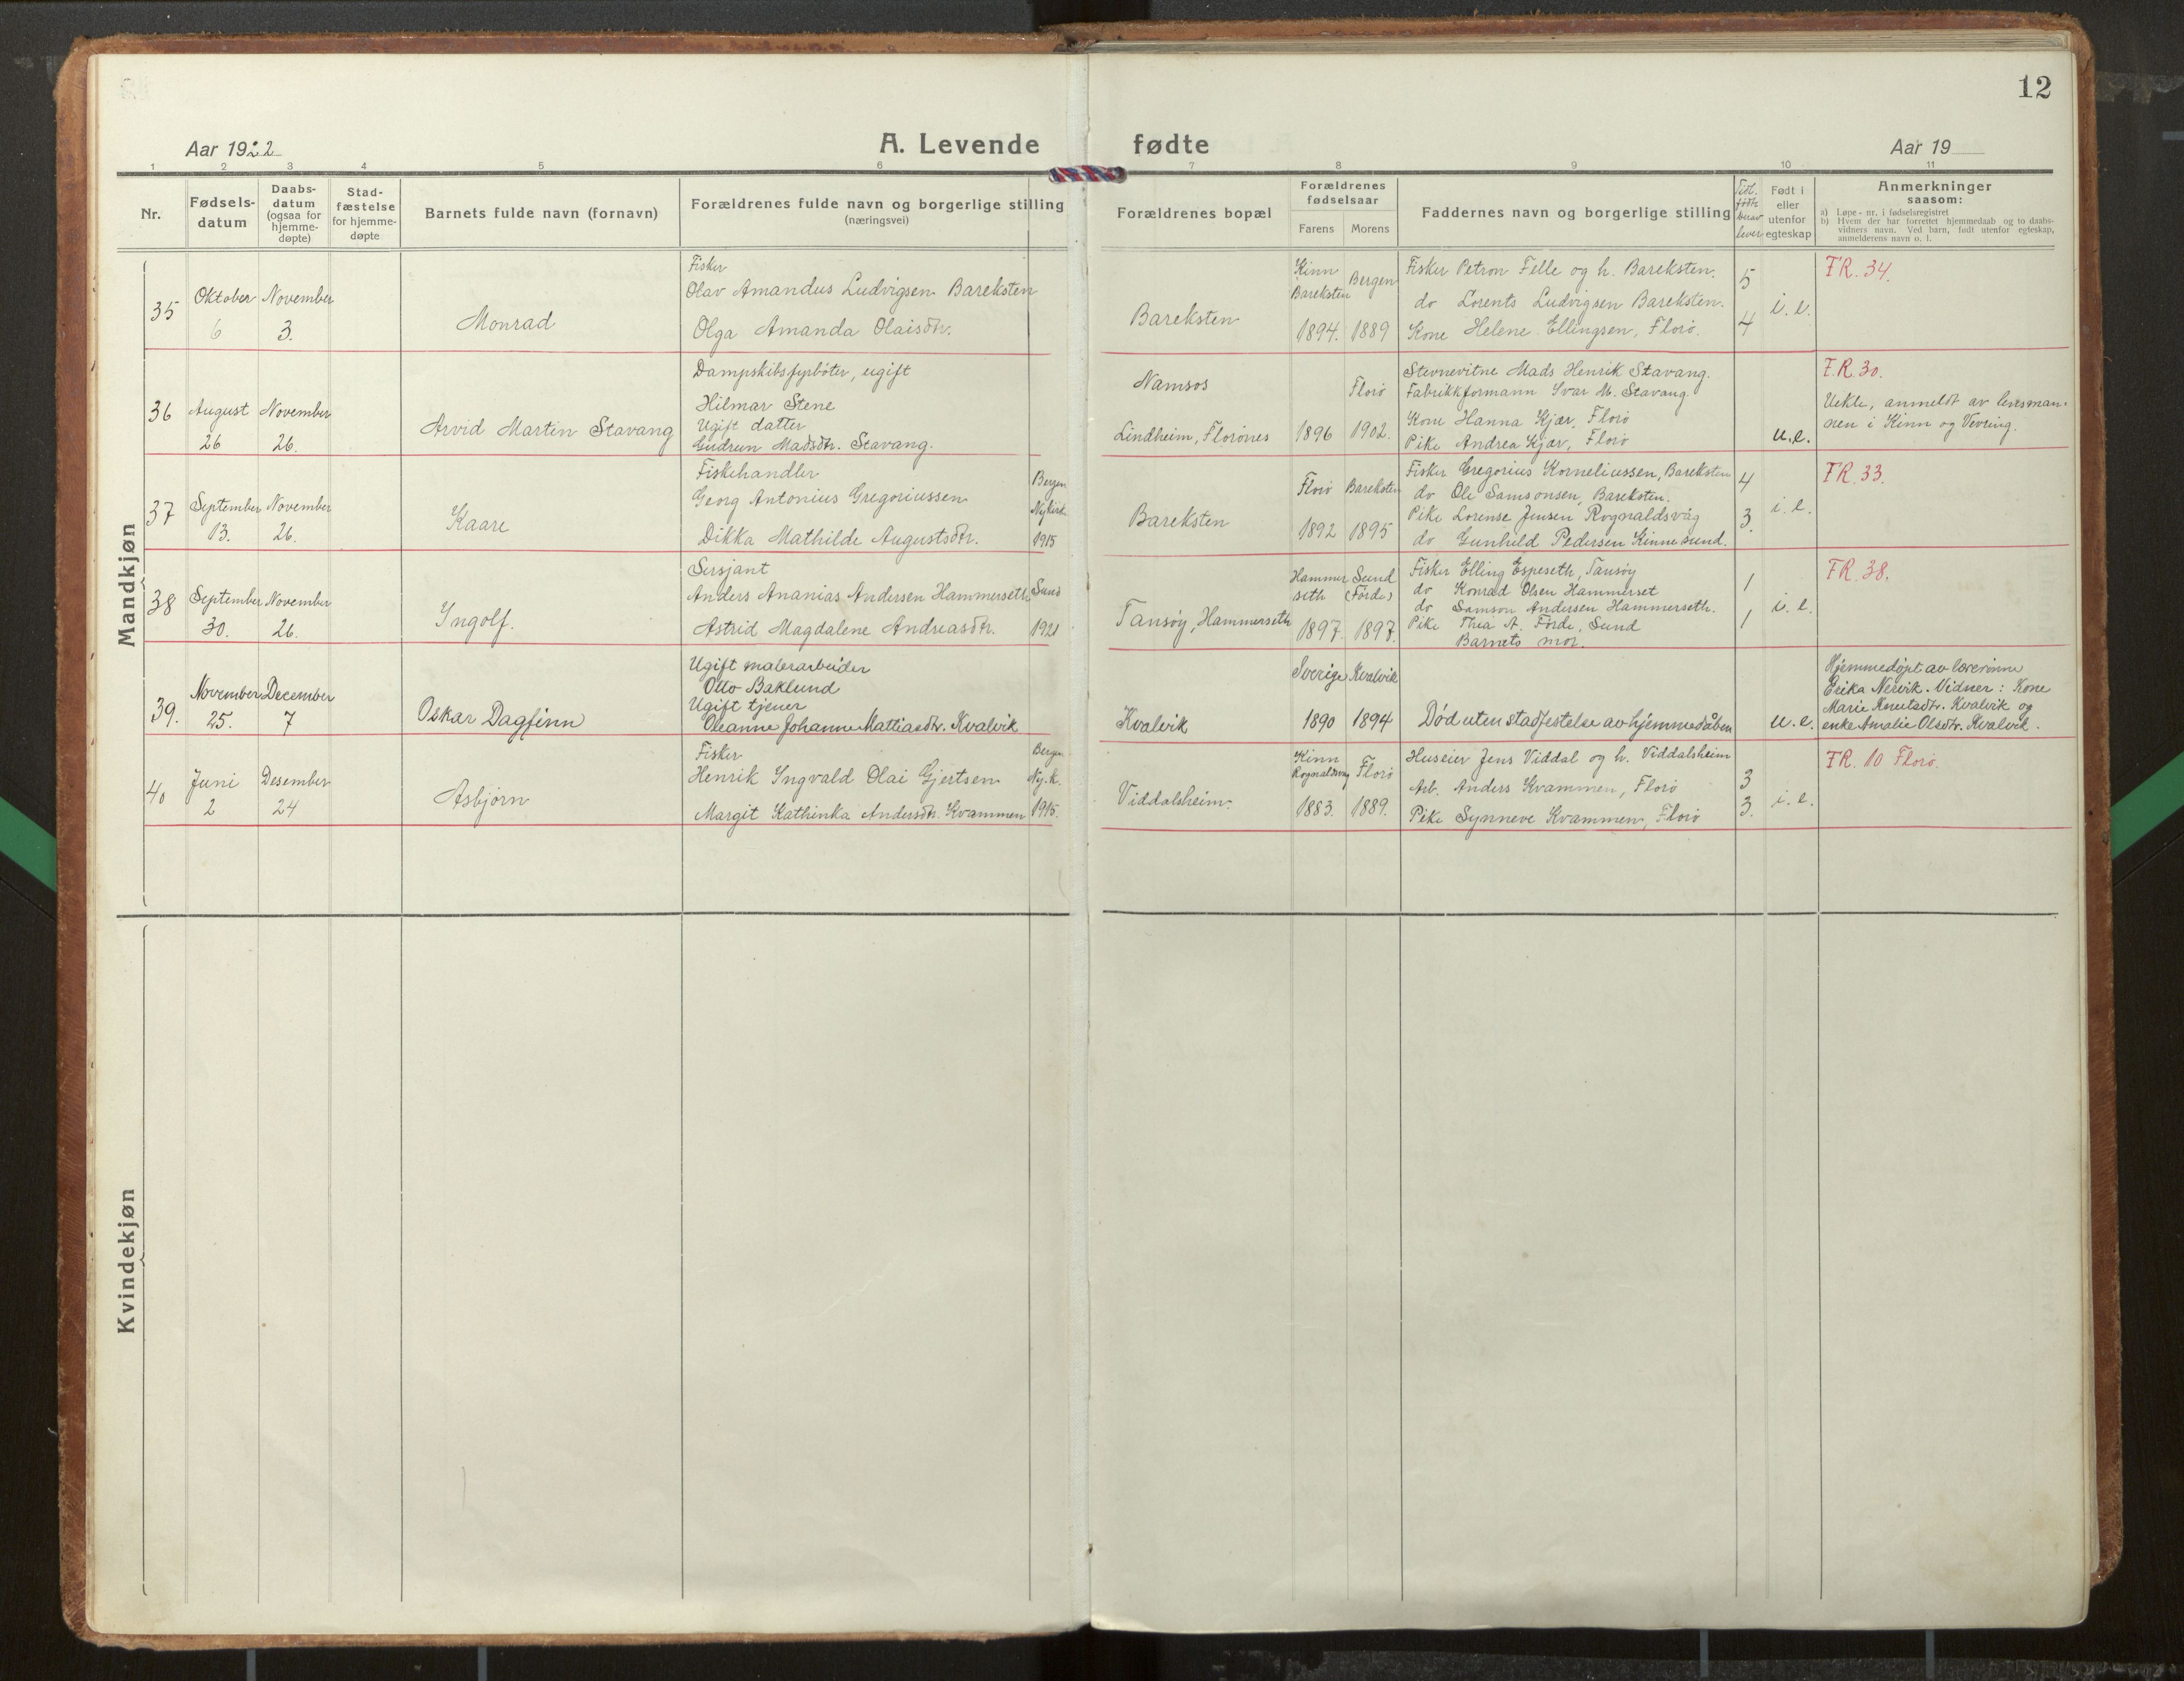 12
Aar 1922 A. Levende fødte Aar 19
1 2 3 4 5 6 7 8 9 10 11
Nr.
Fødsels-
datum
Daabs-
datum
(ogsaa for
hjemme-
døpte)
Stad-
fæstelse
for hjemme-
døpte
Barnets fulde navn (fornavn)
Forældrenes fulde navn og borgerlige stilling
(næringsvei)
Forældrenes bopæl
Forældrenes
fødselsaar
Farens Morens
Faddernes navn og borgerlige stilling
Tidl.
født
herav
lever
Født i
eller
utenfor
egteskap
Anmerkninger
saasom:
a) Løpe-nr. i fødselsregistret
b) Hvem der har forrettet hjemmedaab og to daabs-
vidners navn. Ved barn, født utenfor egteskap,
anmelderens navn o. l.
Mandkjøn
35
Oktober
6
November
3.
Monrad
Fisker
Olav Amandus Ludvigsen Bareksten
Olga Amanda Olaisdtr.
Bareksten
Kinn
Bareksten
1894.
Bergen
1889
Fisker Petron Felle og h. Bareksten.
do Lorents Ludvigsen Bareksten.
Kone Helene Ellingsen, Florø.
5
4
i. e.
F.R. 34.
36
August
26
November
26.
Arvid Martin Stavang
Dampskibsfyrbøter, ugift
Hilmar Stene
Ugift datter
Gudrun Madsdtr. Stavang.
Namsos
Lindheim, Florønes
1896
Florø
1902.
Stevnevitne Mads Henrik Stavang.
Fabrikkformann Ivar M. Stavang.
Kone Hanna Kjær, Florø
Pike Andrea Kjær, Florø
u.e.
F.R. 30.
Uekte, anmeldt av lensman-
nen i Kinn og Vevring.
37
September
13.
November
26.
Kaare
Fiskehandler
Georg Antonius Gregoriussen
Dikka Mathilde Augustsdtr.
Bergen
Nykirk
1915
Bareksten
Florø
1892
Bareksten
1895
Fisker Gregorius Korneliussen, Bareksten
do Ole Samsonsen, Bareksten.
Pike Lorense Jensen Rognaldsvåg
do Gunhild Pedersen Kinnesund.
4
3.
i. e.
F.R. 33.
38
September
30.
November
26.
Ingolf.
Sersjant
Anders Ananias Andersen Hammerseth
Astrid Magdalene Andreasdtr.
Sund
1921
Tansøy, Hammerseth
Hammer
seth
1897
Sund
(Førde)
1897.
Fisker Elling Espeseth, Tansøy
do Konrad Olsen Hammerset
do Samson Andersen Hammerseth.
Pike Thea A. Førde, Sund
Barnets mor.
1
1
i. e.
F.R. 38.
39.
November
25.
December
7
Oskar Dagfinn
Ugift malerarbeider
Otto Baklund
Ugift tjener
Oleanne Johanne Mattiasdtr. Kvalvik
Kvalvik
Sverige
1890
Kvalvik
1894
Død uten stadfestelse av hjemmedåben
u. e.
Hjemmedøpt av lærerinne
Erika Nervik. Vidner: Kone
Marie Knutsdtr. Kvalvik og
enke Amalie Olsdtr. Kvalvik.
40
Juni
2
Desember
24
Asbjørn
Fisker
Henrik Ingvald Olai Gjertsen
Margit Kathinka Andersdtr. Kvammen
Bergen
Ny.k.
1915.
Viddalsheim.
Kinn
Rognaldsvåg
1883.
Florø
1889.
Huseier Jens Viddal og h. Viddalsheim
Arb. Anders Kvammen, Florø
Pike Synneve Kvammen, Florø
3
3.
i. e.
F.R. 10 Florø.
Kvindekjøn